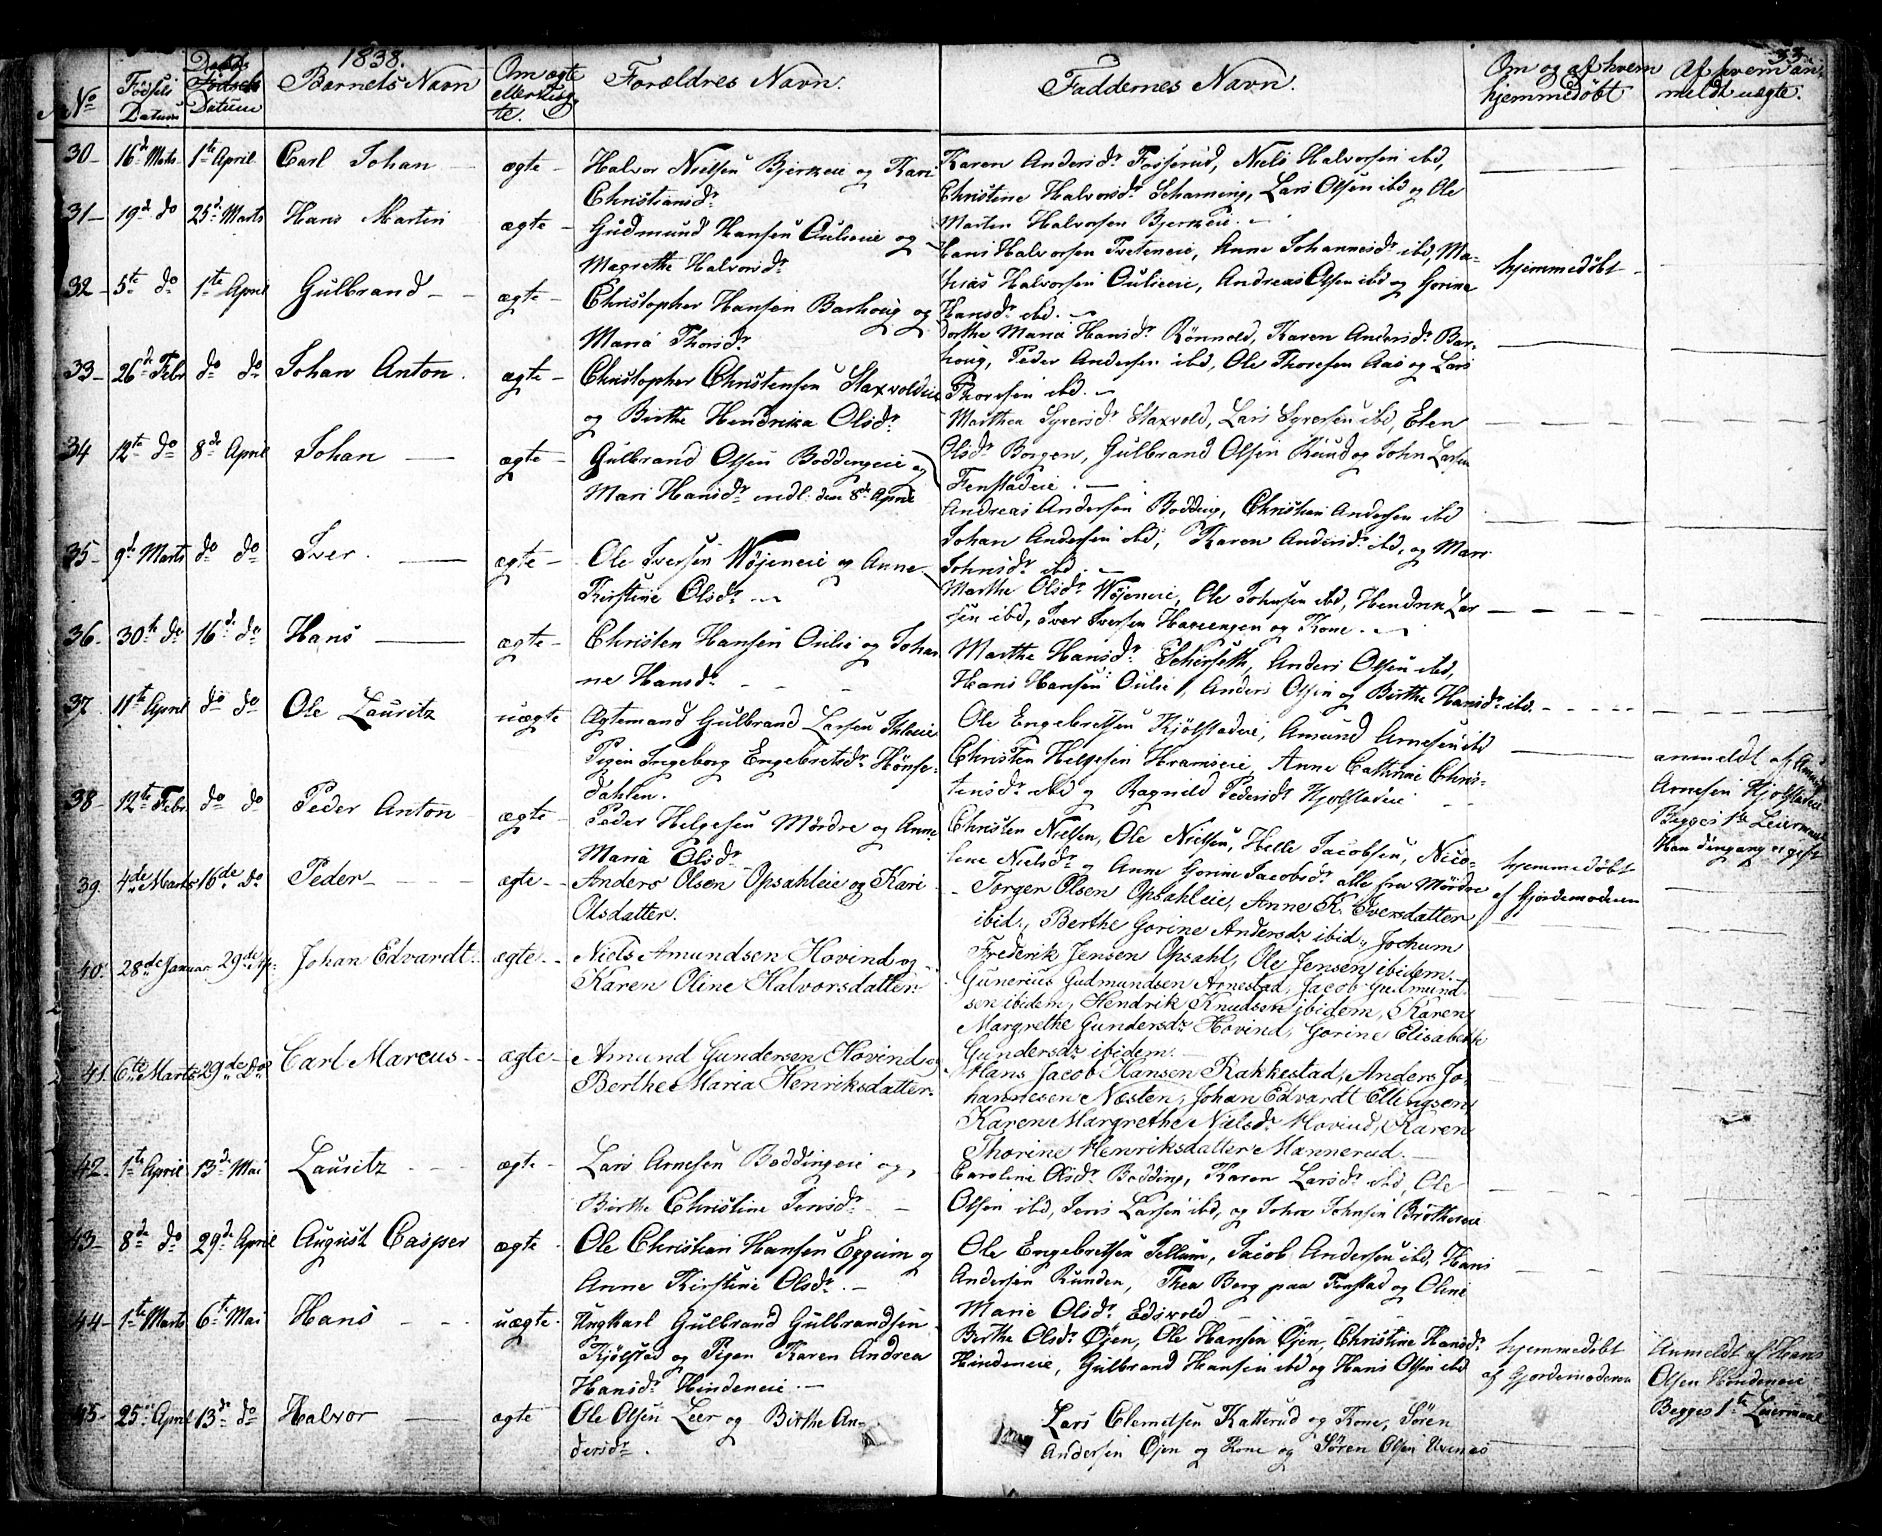 1838.
33.
No
Fødsels Datum
Døbe Datum
Barnets Navn
Om ægte eller uægte.
Forældres Navn.
Faddernes Navn.
Om og af hvem hjemmedøbt
Af hvem anmeldt uægte.
30 16de Marts 1te April Carl Johan ægte Halvor Nielsen Bjerkeie og Kari
Christiansdr
Karen Andersdr Frøserud, Niels Halvorsen ibd,
Christine Halvorsdr Lars Olsen ibd og Ole
Morten Halvorsen Bjerkeie.
31 19de do 25de Marts Hans Martin ægte Gudmund Hansen Oulieie og
Magrethe Halvorsdr
Hans Halvorsen Tveteneie, Anne Johannesdr ibd, Ma-
thias Halvorsen Oulieeie, Andreas Olsen ibd og Gorine
Hansdr ibd.
hjemmedøbt
32 5te do 1te April Gulbrand ægte Christopher Hansen Barhoug og
Maria Thorsdr
Dorthe Maria Hansdr Rønnold, Karen Andersdr Bar-
houg, Peder Andersen ibd, Ole Thoresen Aas og Lars
Thoresen ibd.
33 26de Febr do do Johan Anton ægte Christopher Christensen Staxvoldeie
og Birthe Hendrika Olsdr
Marthea Syversdr Staxvold, Lars Syversen ibd, Elen
Olsdr Borgen, Gulbrand Olsen Ruud og John Larsen
Fenstadeie.
34 12te do 8de April Johan ægte Gulbrand Olsen Boddingeie og
Mari Hansdr indl. den 8de April
Andreas Andersen Bodding, Christian Andersen ibd
Johan Andersen ibd, Karen Andersdr ibd, og Mari
Johnsdr ibd.
35 9de Marts do do Iver. ægte Ole Iversen Wøjeneie og Anne
Kirstine Olsdr
Marthe Olsdr Wøjeneie, Ole Johnsen ibd, Hendrik Lar-
sen ibd, Iver Iversen og Kone.
36. 30te do 16de do Hans ægte Christen Hansen Oulie og Johan
ne Hansdr
Marthe Hansdr Anders Olsen ibd,
Hans Hansen Oulie, Anders Olsen og Birthe Hansdr ibd.
37. 11te April do do Ole Lauritz uægte Ægtemand Gulbrand Larsen
Pigen Ingeborg Engebretsdr Hønse-
dahlen.
Ole Engebretsen Kjølstadeie, Amund Arnesen ibd
Christen Helgesen Anne Cathrine Chris-
tensdr ibd og Ragnild Pedersdr Kjølstadeie
anmeldt af Amund
Arnesen Kjølstadeie
Begges 1te Leiermaal
Han dengang
38 12te Febr do do Peder Anton ægte Peder Helgesen Mørdre og Anne
Maria Olsdr
Christen Nielsen, Ole Nielsen, Helle Jacobsen, Nico-
line Nielsdr og Anne Gorine Jacobsdr alle fra Mørdre
hjemmedøbt
af Gjordemoderen
39. 4de Marts 16de do Peder ægte Anders Olsen Opsahleie og Kari
Olsdatter.
Torger Olsen Opsahleie, Anne K. Iversdatter
ibid., Berthe Gorine Andersdr ibid., Jochum
Frederik Jensen Opsahl, Ole Jensen ibidem.
40. 28de Januar 29de Ap. Johan Edvardt ægte Niels Amundsen Hovind og
Karen Oline Halvorsdatter
Gunerius Gudmundsen Arnestad, Jacob Gudmund-
sen ibidem, Hendrik Knudsen ibidem, Karen
Margrethe Gundersdr Hovind, Gorine Elisabeth
Gundersdr ibidem.
41. 6te Marts 29de do Carl Marcus ægte Amund Gundersen Hovind og
Berthe Maria Henriksdatter
Hans Jacob Hansen Rakkestad, Anders Jo-
hannesen Næsten, Johan Edvardt Ellingsen,
Karen Margrethe Nielsdr Hovind, Karen
Thorine Henriksdatter Mannerud.
42. 1te April 13de Mai Lauritz ægte Lars Arnesen Boddingeie og
Birthe Christine Jensdr
Caroline Olsdr Bodding, Karen Larsdr ibd, Ole
Olsen ibd, Jens Larsen ibd, og Johan Johnsen Brøthereie
43 8de do 29de April August Casper ægte Ole Christian Hansen Eggum og
Anne Kirstine Olsdr
Ole Engebretsen Tellum, Jacob Andersen ibd, Hans
Andersen Runden, Thea Berg paa Fenstad og Oline
Marie Olsdr Edsvold
44 1te Marts 6te Mai Hans uægte Ungkarl Gulbrand Gulbrandsen
Kjølstad og Pigen Karen Andrea
Hansdr Hindeneie.
Birthe Olsdr Øjen, Ole Hansen Øjen, Christine Hansdr
Hindeneie, Gulbrand Hansen ibd og Hans Olsen ibd
hjemmedøbt
af Gjordemoderen
Anmeldt af Hans
Olsen Hindeneie
Begges 1te Leiermaal
45. 25de April 13de do Halvor ægte Ole Olsen Leer og Birthe An-
dersdr.
Lars Clemetsen Katterud og Kone, Søren
Andersen Øjen og Kone og Søren Olsen